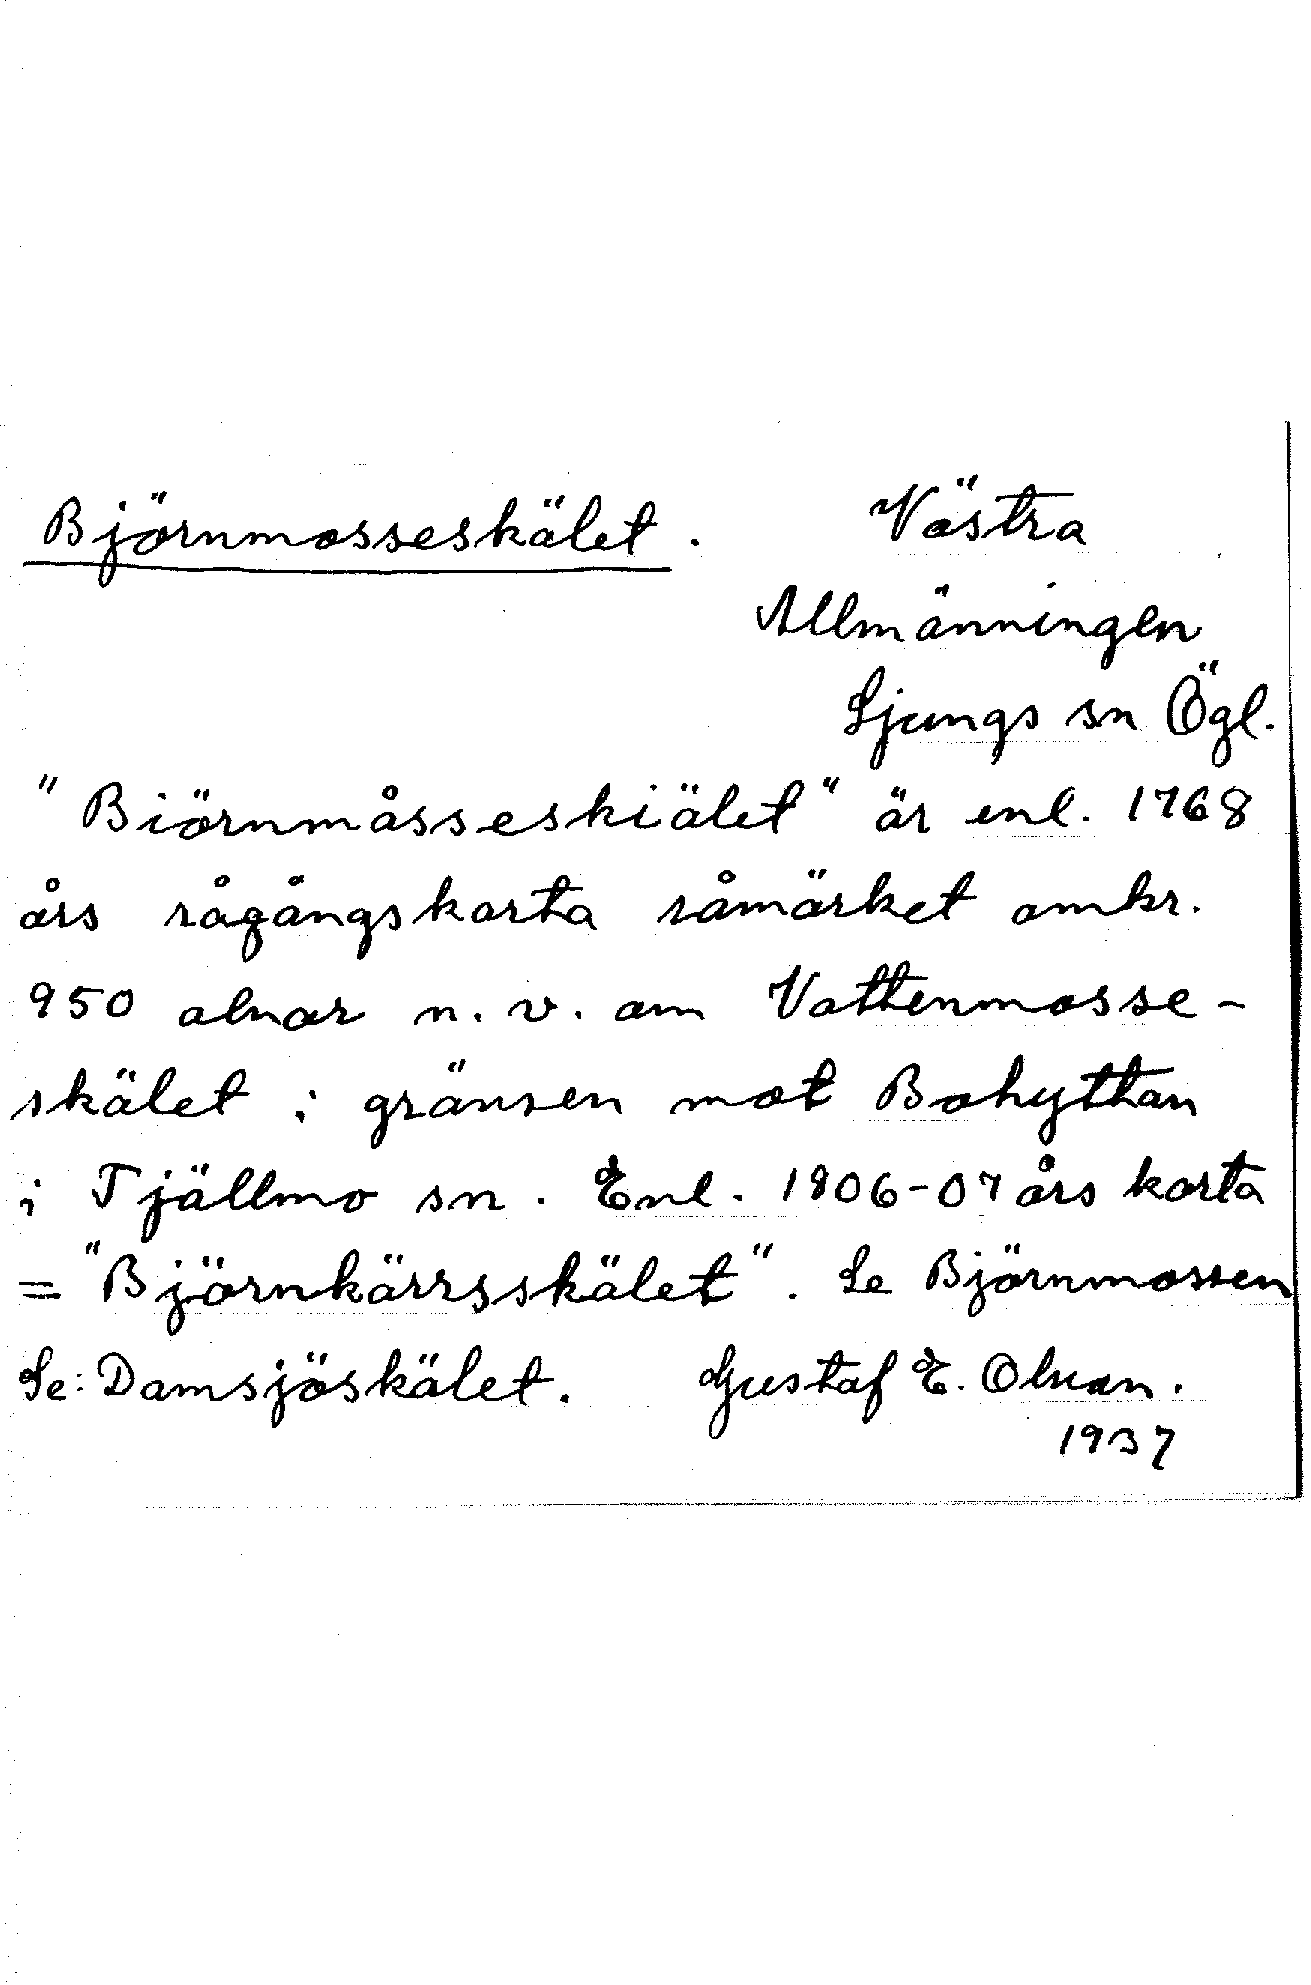 Björnmosseskälet. Västra
Allmänningen
Ljungs sn Ögl.
"Biörnmåsseskiälet" är enl. 1768
års rågångskarta råmärket omkr.
950 alnar n. v. om Vattenmosse-
skälet i gränsen mot Bohyttan
i Tjällmo sn. Enl. 1806-07 års karta
= "Björnkärrsskälet". Se Björnmossen
Se: Damsjöskälet. Gustaf E. Olsson.
1937